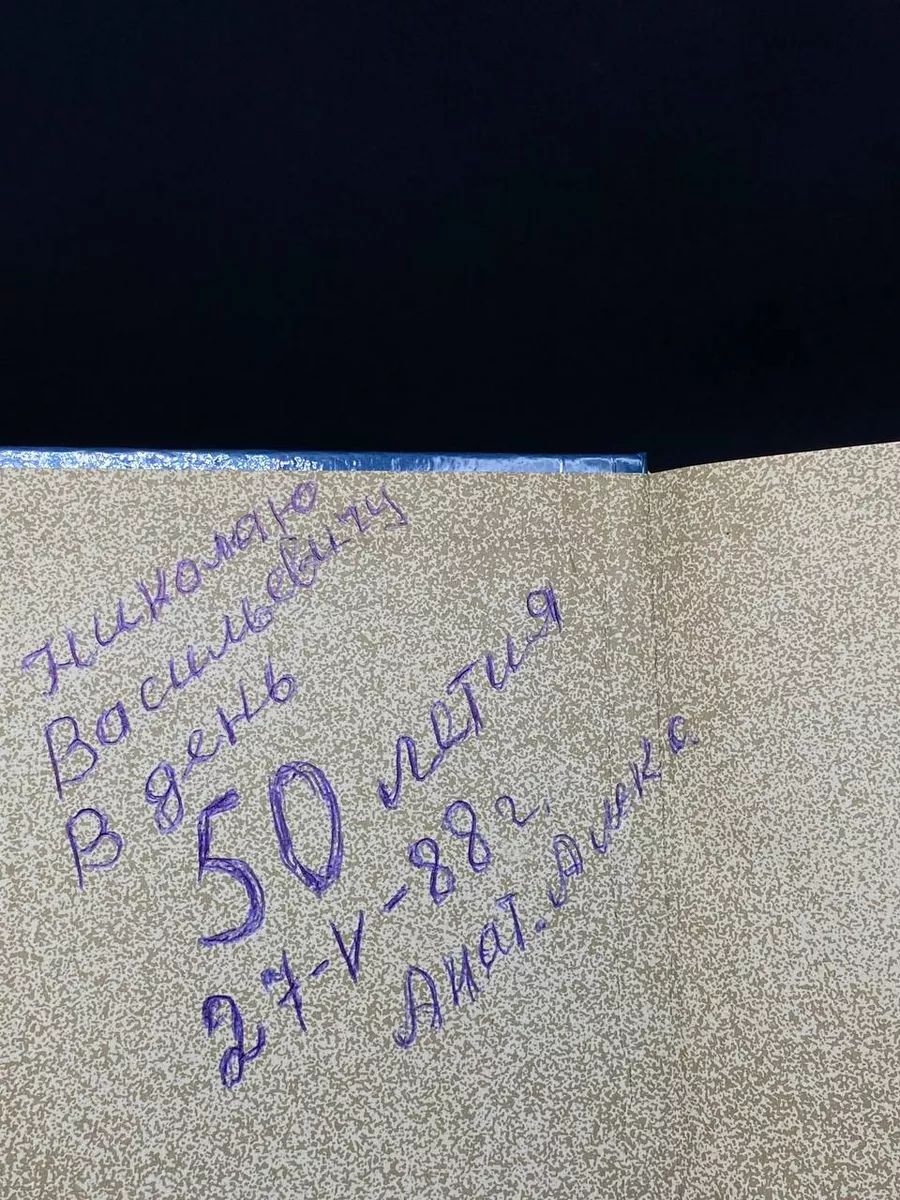 Николаю
Васильевичу
В день
50 летия
27-V-88 г.
Анат.